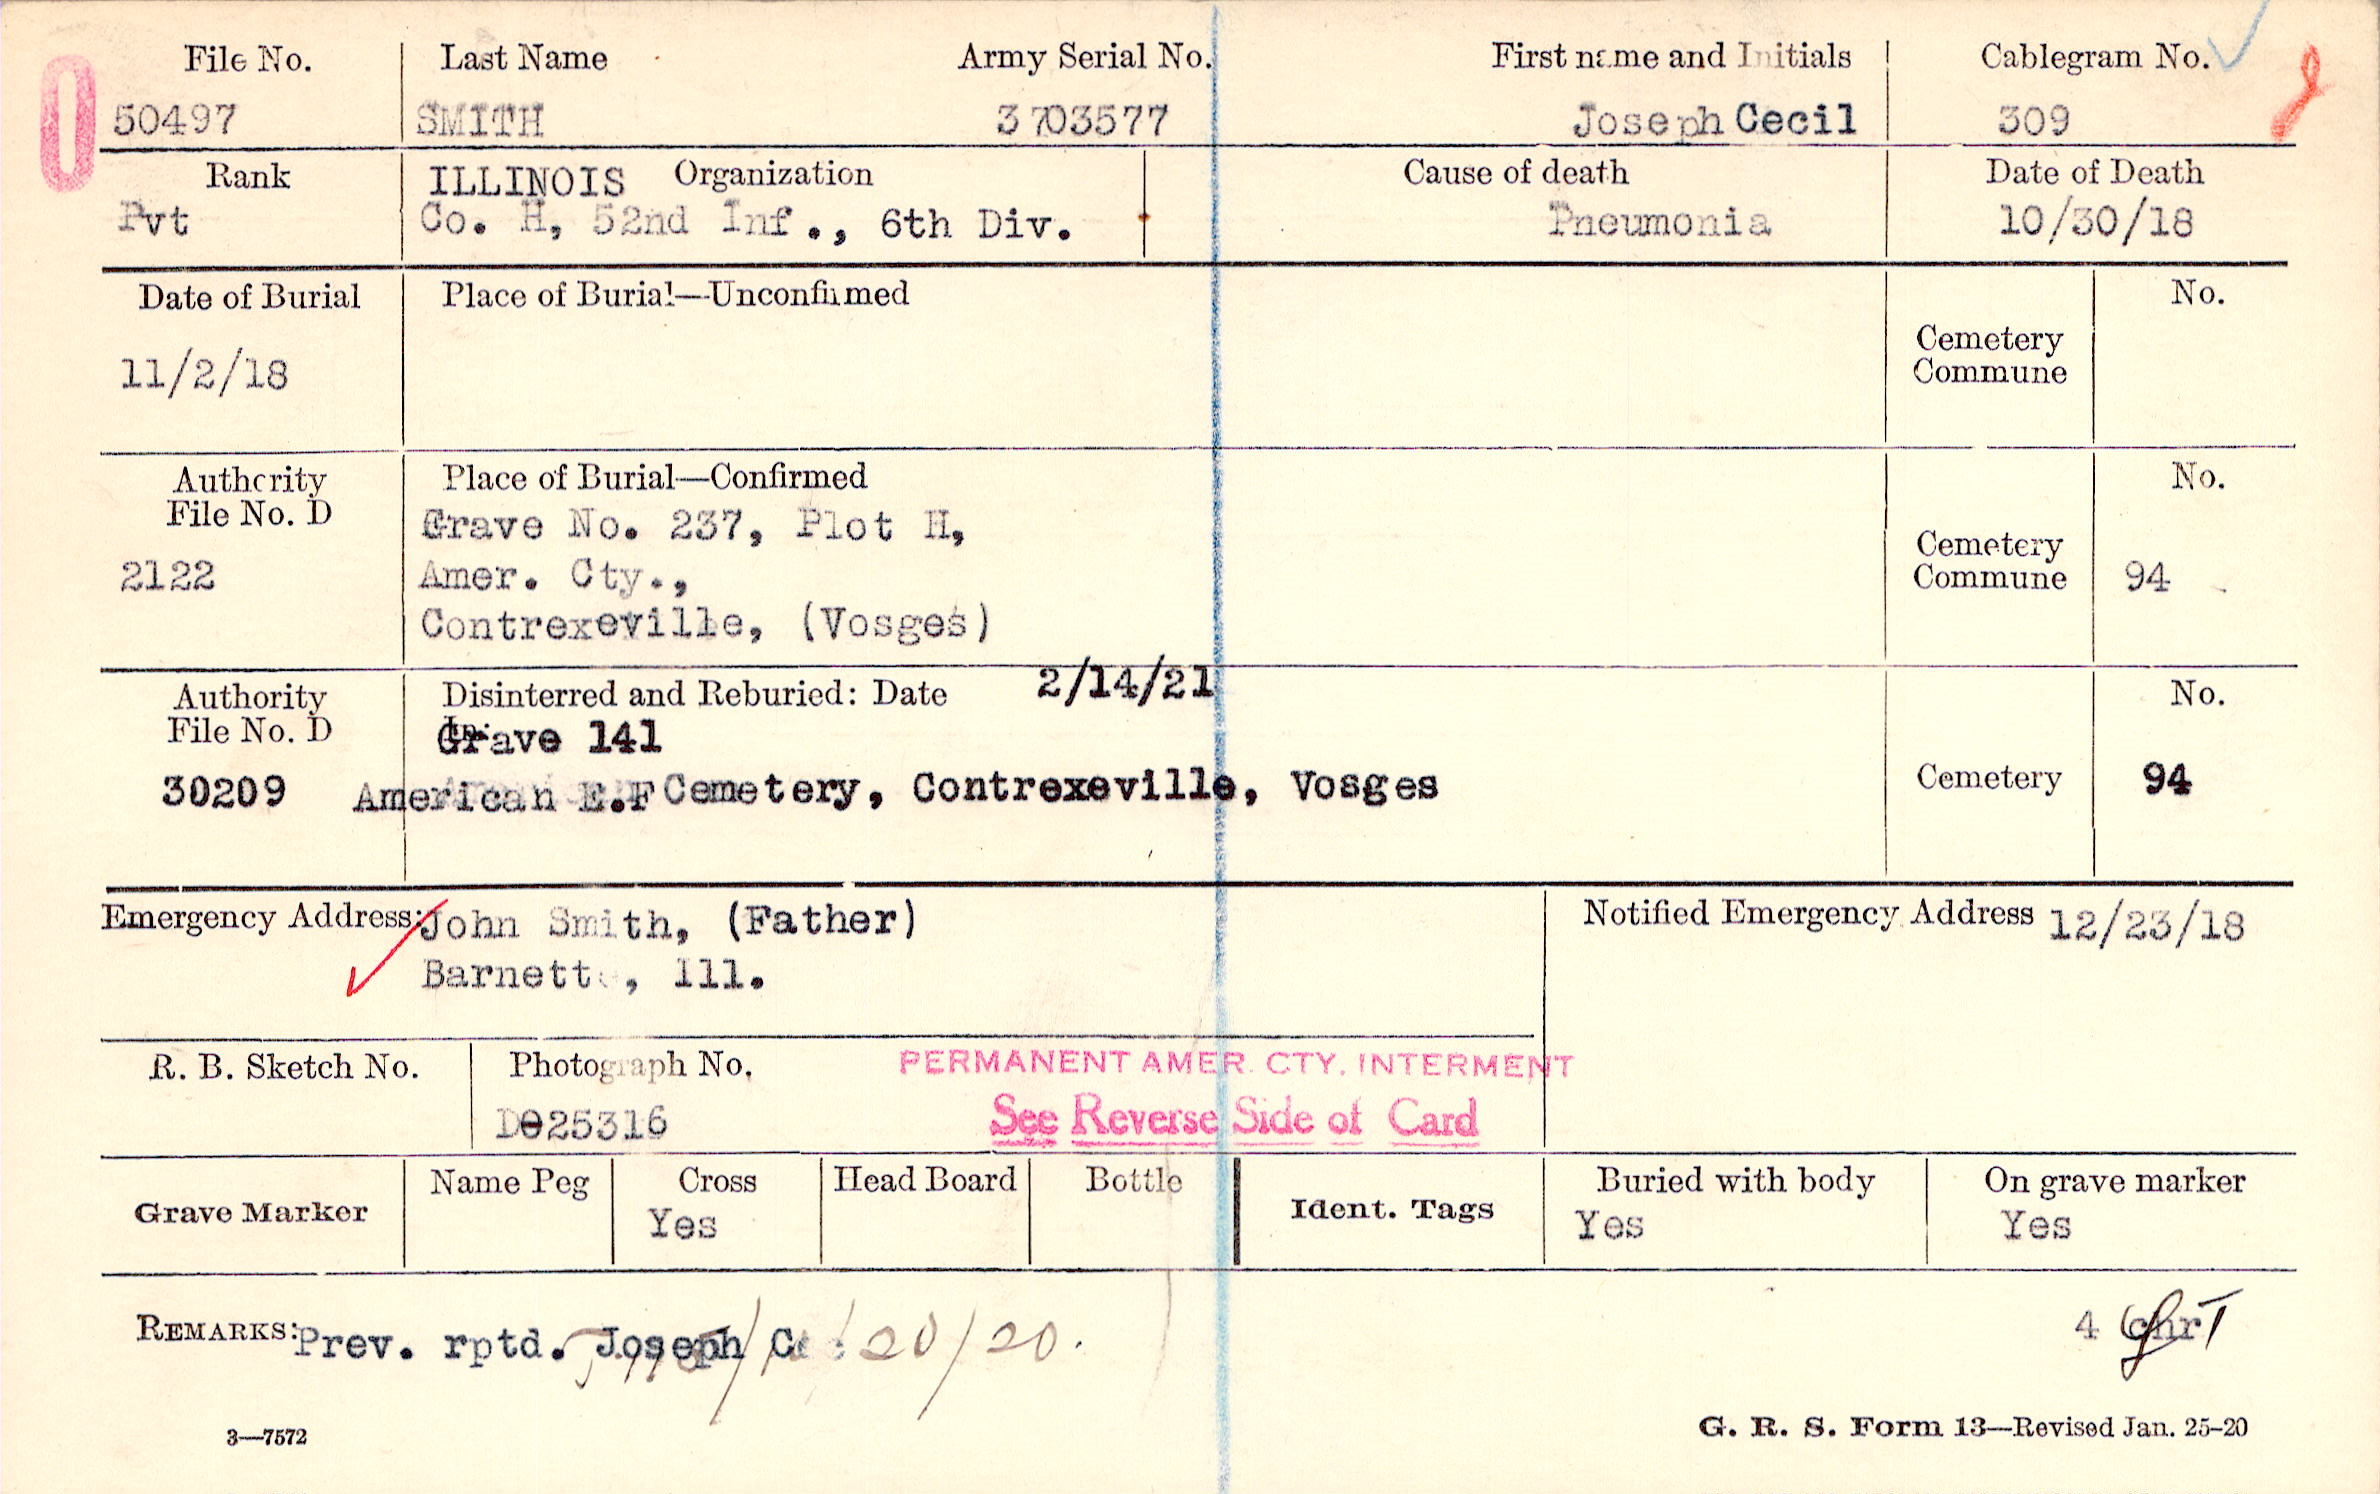 File No. Last Name Army Serial No. First name and Initials Cablegram No.
50497 SMITH 3703577 Joseph Cecil 309
Rank ILLINOIS Organization Cause of death Date of Death
Pvt Co. H, 52nd Inf., 6th Div. Pneumonia 10/30/18
Date of Burial Place of Burial—Unconfirmed No.
11/2/18 Cemetery
Commune
Authority Place of Burial—Confirmed No.
File No. D Grave No. 237, Plot H,
2122 Amer. Cty., Cemetery
Commune 94
Contrexeville, (Vosges)
Authority Disinterred and Reburied: Date 2/14/21 No.
File No. D Grave 141
30209 American E.F Cemetery, Contrexeville, Vosges Cemetery 94
Emergency Address: John Smith, (Father) Notified Emergency Address 12/23/18
Barnett, Ill.
R. B. Sketch No. Photograph No. PERMANENT AMER. CTY. INTERMENT
D025316 See Reverse Side of Card
Grave Marker Name Peg Cross Head Board Bottle Ident. Tags Buried with body On grave marker
Yes Yes Yes
REMARKS: Prev. rptd. Joseph C. 20/20.
4
3—7572 G. R. S. Form 13—Revised Jan. 25-20